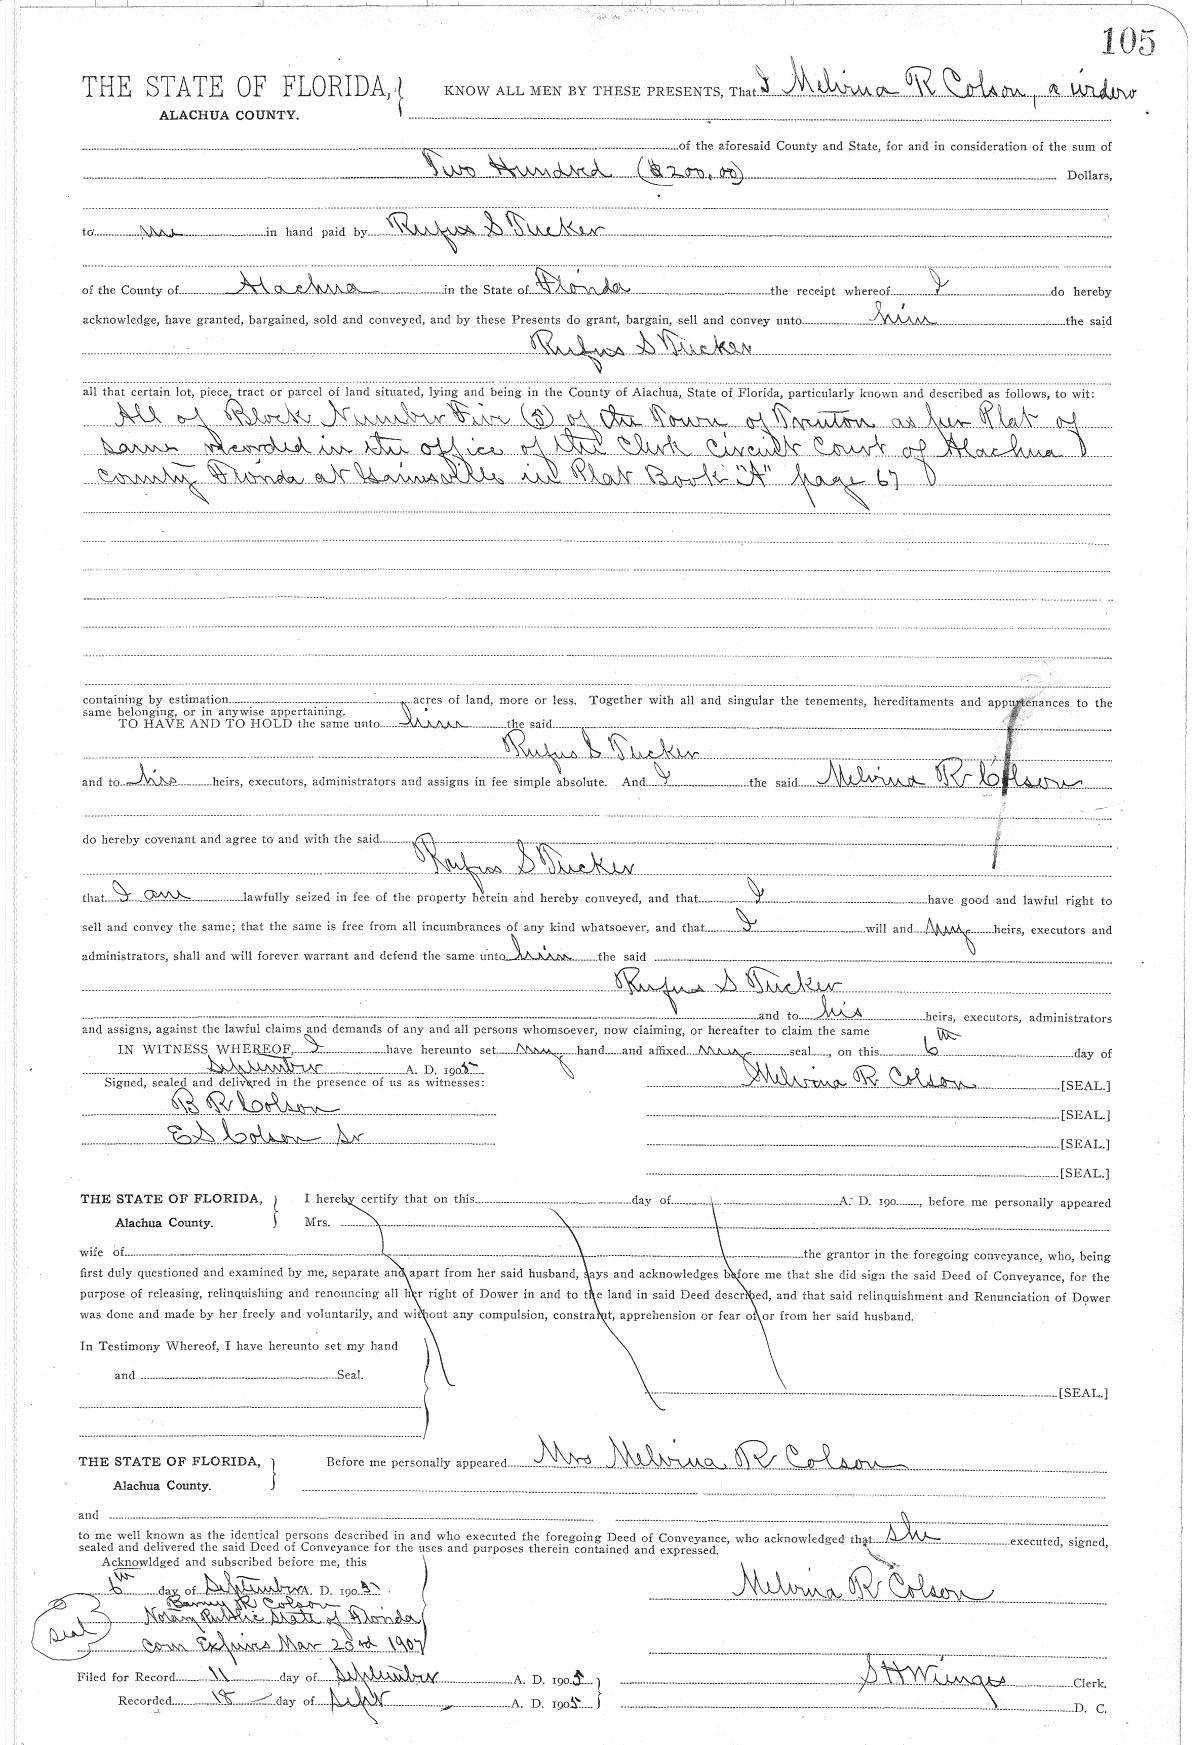 105
THE STATE OF FLORIDA, KNOW ALL MEN BY THESE PRESENTS, That I Melvina R Colson, a widow
ALACHUA COUNTY.
of the aforesaid County and State, for and in consideration of the sum of
Two Hundred ($200.00) Dollars,
to me in hand paid by Rufus S Tucker
of the County of Alachua in the State of Florida the receipt whereof I do hereby
acknowledge, have granted, bargained, sold and conveyed, and by these Presents do grant, bargain, sell and convey unto him the said
Rufus S Tucker
all that certain lot, piece, tract or parcel of land situated, lying and being in the County of Alachua, State of Florida, particularly known and described as follows, to wit:
All of Block Number Five (5) of the Town of Trenton as per Plat of
same recorded in the office of the Clerk Circuit Court of Alachua
County Florida at Gainesville in Plat Book "A" page 67
containing by estimation acres of land, more or less. Together with all and singular the tenements, hereditaments and appurtenances to the
same belonging, or in anywise appertaining.
TO HAVE AND TO HOLD the same unto him the said
Rufus S Tucker
and to his heirs, executors, administrators and assigns in fee simple absolute. And I the said Melvina R Colson
do hereby covenant and agree to and with the said
Rufus S Tucker
that I am lawfully seized in fee of the property herein and hereby conveyed, and that I have good and lawful right to
sell and convey the same; that the same is free from all incumbrances of any kind whatsoever, and that I will and my heirs, executors and
administrators, shall and will forever warrant and defend the same unto him the said
Rufus S Tucker
and to his heirs, executors, administrators
and assigns, against the lawful claims and demands of any and all persons whomsoever, now claiming, or hereafter to claim the same
IN WITNESS WHEREOF, I have hereunto set my hand and affixed my seal, on this 6th day of
September A. D. 1905
Signed, sealed and delivered in the presence of us as witnesses: Melvina R Colson [SEAL.]
B R Colson [SEAL.]
E S Colson Sr [SEAL.]
[SEAL.]
THE STATE OF FLORIDA, I hereby certify that on this day of A. D. 190 , before me personally appeared
Alachua County. Mrs.
wife of the grantor in the foregoing conveyance, who, being
first duly questioned and examined by me, separate and apart from her said husband, says and acknowledges before me that she did sign the said Deed of Conveyance, for the
purpose of releasing, relinquishing and renouncing all her right of Dower in and to the land in said Deed described, and that said relinquishment and Renunciation of Dower
was done and made by her freely and voluntarily, and without any compulsion, constraint, apprehension or fear of or from her said husband.
In Testimony Whereof, I have hereunto set my hand
and Seal.
[SEAL.]
THE STATE OF FLORIDA, Before me personally appeared Mrs Melvina R Colson
Alachua County.
and
to me well known as the identical persons described in and who executed the foregoing Deed of Conveyance, who acknowledged that she executed, signed,
sealed and delivered the said Deed of Conveyance for the uses and purposes therein contained and expressed.
Acknowldged and subscribed before me, this
6th day of September A. D. 1905. Melvina R Colson
Barney R Colson
Notary Public State of Florida
seal
Com Expires Mar 23rd 1907
Filed for Record 11 day of September A. D. 1905 S H Wienges Clerk.
Recorded 18 day of Sept A. D. 1905 D. C.